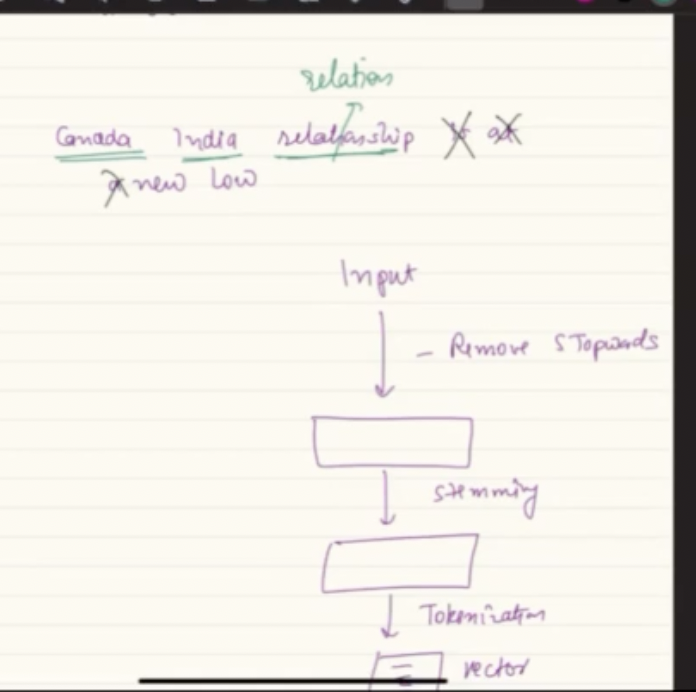 relation
Canada India relationship is at
a new low
Input
- Remove STopwords
Stemming
Tokenization
vector